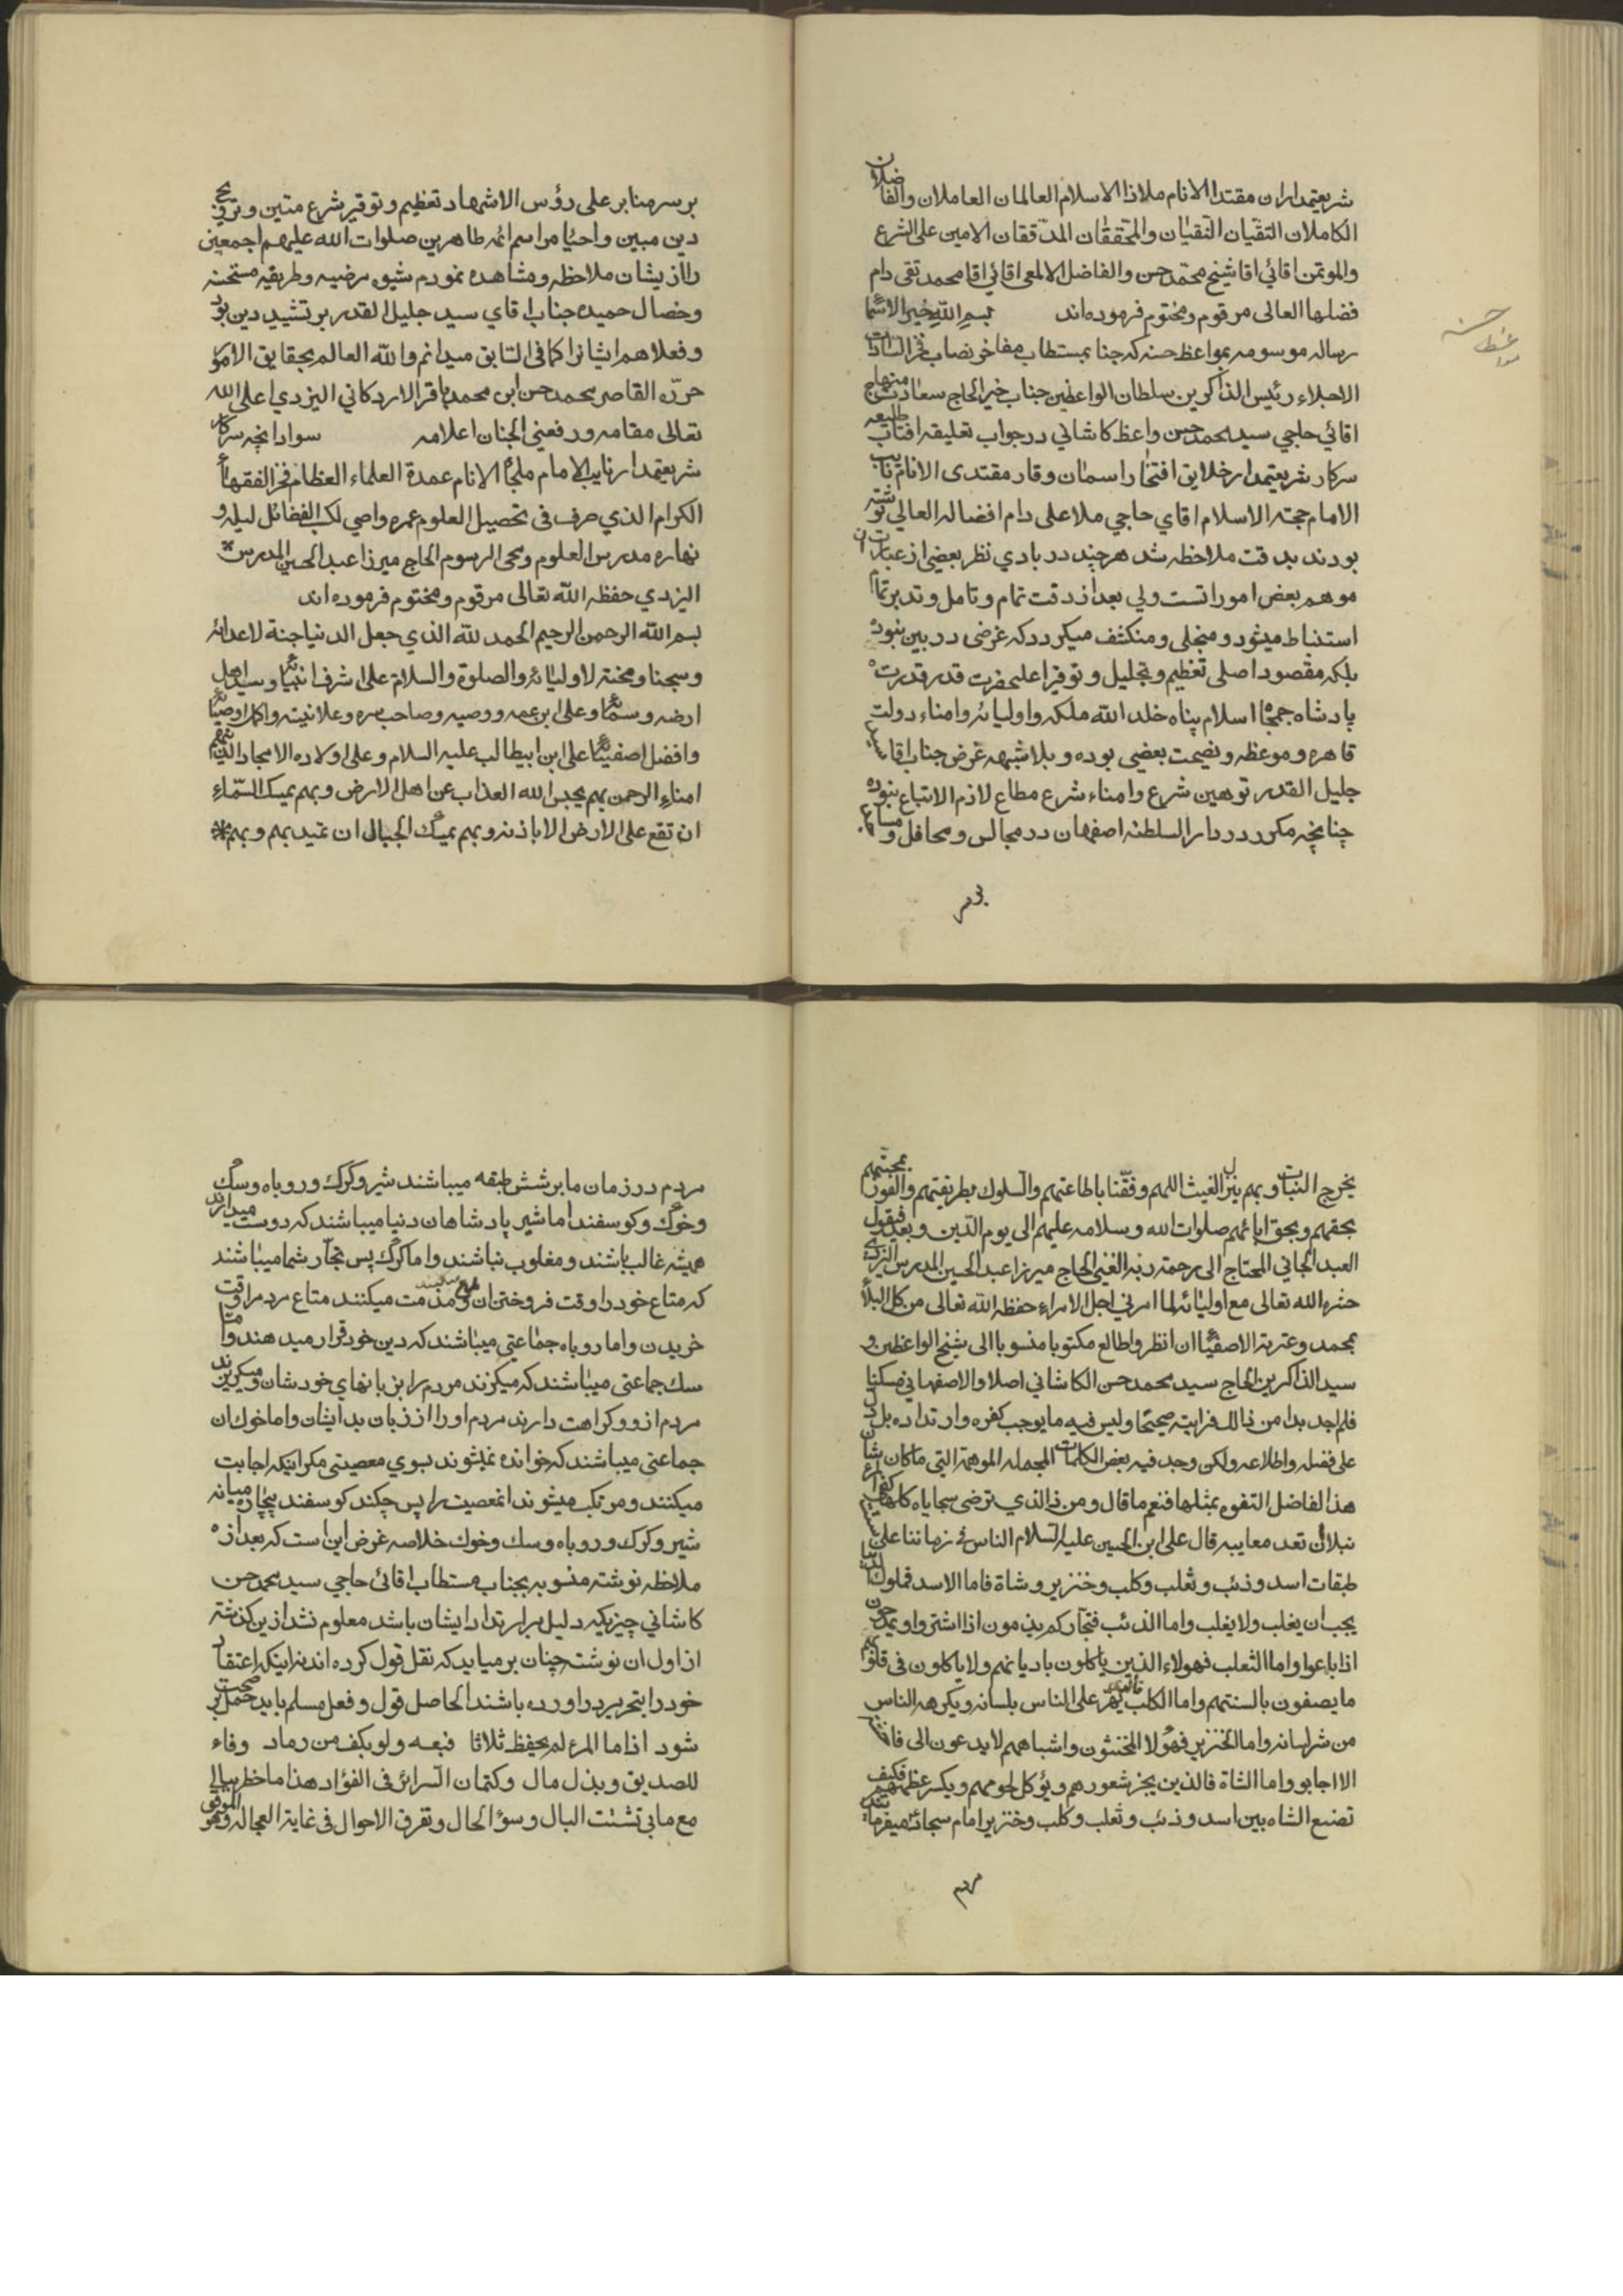 شریعتمداران مقتدا الانام ملاذا الاسلام العالمان العاملان والفاضلان
الکاملان التقیان النقیان والمحققان المدققان الامین علی الشرع
والموتمن اقائی اقا شیخ محمد حسن والفاضل الالمعی اقائی اقا محمد تقی دام
فضلها العالی مرقوم ومختوم فرموده‌اند بسم الله خیر الاسما
رساله موسومه بمواعظ حسنه که جناب مستطاب مفاخر نصاب فخر السادات
الاجلاء رئیس الذاکرین سلطان الواعظین جناب خیر الحاج سعادت منهاج
اقائی حاجی سید محمد حسن واعظ کاشانی در جواب تعلیقه افتاب طلیعه
سرکار شریعتمدار خلایق افتخار اسمان وقار مقتدی الانام نایب
الامام حجة الاسلام اقای حاجی ملا علی دام افضاله العالی نوشته
بودند بدقت ملاحظه شد هرچند در بادی نظر بعضی از عبارت ان
موهم بعض امورا تست ولی بعد از دقت تمام وتامل وتدبر تمام
استنباط میشود ومنجلی ومنکشف میکردد که غرضی در بین نبوده
بلکه مقصود اصلی تعظیم وتجلیل وتوقیر اعلیحضرت قدر قدرت
پادشاه جمجاه اسلام پناه خلد الله ملکه واولیائه وامناء دولت
قاهره وموعظه ونصیحت بعضی بوده وبلاشبهه غرض جناب اقا سید
جلیل القدر توهین شرع وامناء شرع مطاع لازم الاتباع نبوده
چنانچه مکرر در دار السلطنه اصفهان در مجالس ومحافل و
بر سر
بر سر منابر علی رؤس الاشهاد تعظیم وتوقیر شرع متین وترویج
دین مبین واحیا مراسم ائمه طاهرین صلوات الله علیهم اجمعین
را از یشان ملاحظه ومشاهده نمودم شیوه مرضیه وطریقه مستحسنه
وخصال حمیده جناب اقای سید جلیل القدر بر تشیید دین بود
وفعلا هم ایشانرا کما فی السابق میدانم والله العالم بحقایق الامور
حرّره القاصر محمد حسن ابن محمد باقر الاردکانی الیزدی اعلی الله
تعالی مقامه ورفعنی الجنان اعلامه سواد انچه سرکار
شریعتمدار نایب الامام ملجأ الانام عمدة العلماء العظام فخر الفقهاء
الکرام الذی صرف فی تحصیل العلوم عمره واصی لکسب الفضائل لیله و
نهاره مدرس العلوم ومحی الرسوم الحاج میرزا عبد الحسین المدرس
الیزدی حفظه الله تعالی مرقوم ومختوم فرموده‌اند
بسم الله الرحمن الرحیم الحمد لله الذی جعل الدنیا جنة لاعدائه
وسجنا ومحنة لاولیائه والصلوة والسلام علی اشرف انبیائه وسید اهل
ارضه وسمائه وعلی ابن عمه ووصیه وصاحب سره وعلانیته واکمل اوصیائه
وافضل اصفیائه علی ابن ابیطالب علیه السلام وعلی اولاده الامجاد الذین هم
امناء الرحمن بهم یحبس الله العذاب عن اهل الارض وبهم یمسک السماء
ان تقع علی الارض الا باذنه وبهم یمسک الجبال ان تمید بهم وبهم
یخرج النبات وبهم ینزل الغیث اللهم وفقنا باطاعتهم والسلوک بطریقتهم والفوز بمحبتهم
بحقهم وبحق ابائهم صلوات الله وسلامه علیهم الی یوم الدین وبعد فیقول
العبد الجانی المحتاج الی رحمة ربه الغنی الحاج میرزا عبد الحسین المدرس الیزدی
حشره الله تعالی مع اولیائه لما امرنی اجل الامراء حفظه الله تعالی من کل البلاء
بمحمد وعترته الاصفیاء ان انظر واطالع مکتوبا منسوبا الی شیخ الواعظین و
سید الذاکرین الحاج سید محمد حسن الکاشانی اصلا والاصفهانی مسکنا
فلم اجد بدا من ذالک فرایته صحیحا ولیس فیه ما یوجب کفره وارتداده بل دل
علی فضله واطلاعه ولکن وجد فیه بعض الکلمات المجمله الموهمة التی ما کان شان
هذا الفاضل التفوه بمثلها فنعم ما قال ومن ذا الذی ترضی سجایاه کلها کفی المرء
نبلا ان تعد معایبه قال علی ابن الحسین علیه السلام الناس فی زماننا علی
طبقات اسد وذئب وثعلب وکلب وخنزیر وشاة فاما الاسد فملوک الدنیا
یحب ان یغلب ولا یغلب واما الذئب فتجارکم یذمون اذا اشتروا ویمدحون
اذا باعوا واما الثعلب فهولاء الذین یاکلون بادیانهم ولا یاکلون فی قلوبهم
ما یصفون بالسنتهم واما الکلب یهر علی الناس بلسانه ویکرهه الناس
من شر لسانه واما الخنزیر فهولا المخنثون واشباههم لا یدعون الی فاحشة
الا اجابوا واما الشاة فالذین یجز شعورهم ویؤکل لحومهم ویکسر عظمهم فکیف
تصنع الشاه بین اسد وذئب وثعلب وکلب وخنزیر امام سجاد میفرماید
مردم
مردم در زمان ما بر شش طبقه میباشند شیر وکرک وروباه وسک
وخوک وکوسفند اما شیر پادشاهان دنیا میباشند که دوست میدارند
همیشه غالب باشند ومغلوب نباشند واما کرک پس تجار شما میباشند
که متاع خود را وقت فروختن مدح میکنند ومذمت میکنند متاع مردم را وقت
خریدن واما روباه جماعتی میباشند که دین خود قرار میدهند واما
سک جماعتی میباشند که میکزند مردم را بزبانهای خودشان ومیکریزند
مردم از و وکراهت دارند مردم او را از زبان بد ایشان واما خوک ان
جماعتی میباشند که خوانده نمیشوند بسوی معصیتی مکر اینکه اجابت
میکنند ومرتکب میشوند انمعصیت را پس چکند کوسفند بیچاره میانه
شیر وکرک وروباه وسک وخوک خلاصه غرض این است که بعد از
ملاحظه نوشته منسوبه بجناب مستطاب اقائی حاجی سید محمد حسن
کاشانی چیزیکه دلیل بر ارتداد ایشان باشد معلوم نشد ازین کذشته
از اول ان نوشته چنان بر میاید که نقل قول کرده اند نه اینکه اعتقاد
خود را بتحریر در اورده باشند الحاصل قول وفعل مسلم باید حمل بر صحت
شود اذا ما المرء لم یحفظ ثلاثا فبعه ولو بکف من رماد وفاء
للصدیق وبذل مال وکتمان السرائر فی الفؤاد هذا ما خطر ببالی
مع ما بی تشتت البال وسوء الحال وتفرق الاحوال فی غایة العجاله وهو الموفق